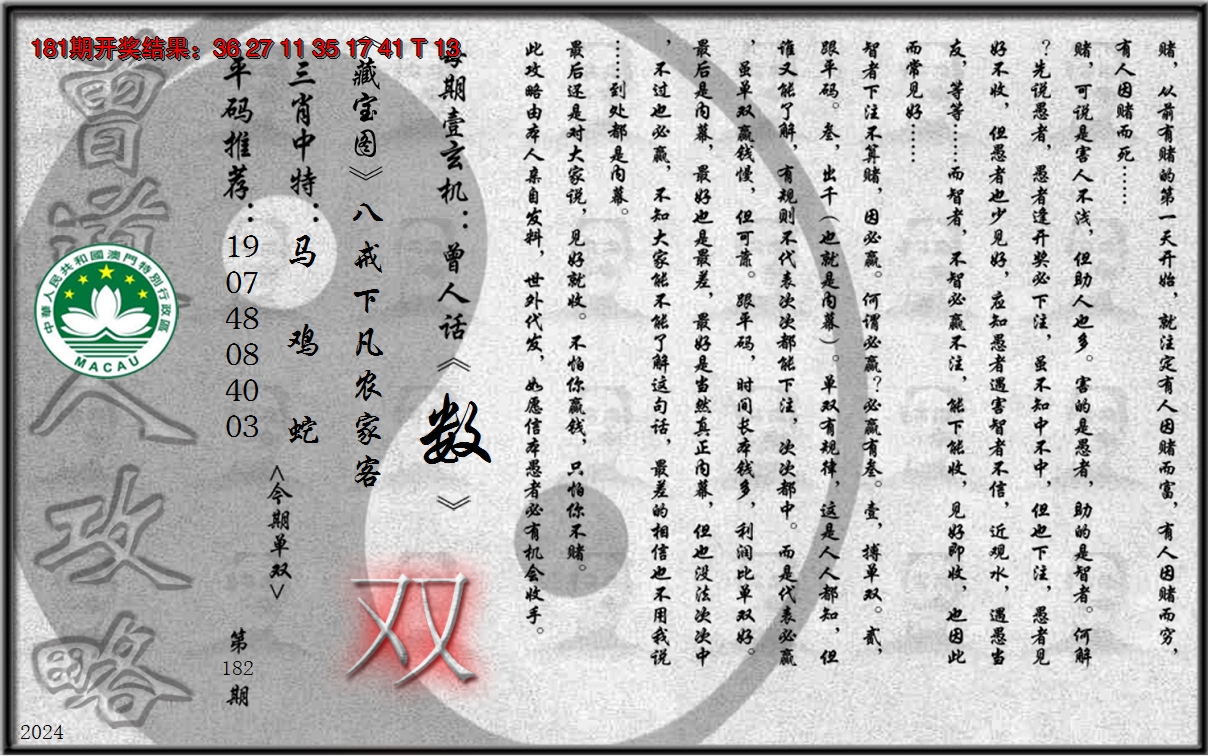 181期开奖结果：36 27 11 35 17 41 T 13
赌，从前有赌的第一天开始，就注定有人因赌而富，有人因赌而穷，
有人因赌而死……
赌，可说是害人不浅，但助人也多。害的是愚者，助的是智者。何解
？先说愚者，愚者逢开奖必下注，虽不知中不中，但也下注，愚者见
好不收，但愚者也少见好，应知愚者遇害智者不信，近观水，遇愚当
友，等等……而智者，不智必赢不注，能下能收，见好即收，也因此
而常见好……
智者下注不算赌，因必赢。何谓必赢？必赢有叁。壹，搏单双。贰，
跟平码。叁，出千（也就是内幕）。单双有规律，这是人人都知，但
谁又能了解，有规则不代表次次都能下注，次次都中。而是代表必赢
，虽单双赢钱慢，但可靠。跟平码，时间长本钱多，利润比单双好。
最后是内幕，最好也是最差，最好是当然真正内幕，但也没法次次中
，不过也必赢，不知大家能不能了解这句话，最差的相信也不用我说
……到处都是内幕。
最后还是对大家说，见好就收。不怕你赢钱，只怕你不赌。
此攻略由本人亲自发料，世外代发，如愿信本愚者必有机会收手。
每期壹玄机：曾人话《数》
《藏宝图》八戒下凡农家客
双
三肖中特：马 鸡 蛇
<今期单双>
平码推荐：19 07 48 08 40 03
第182期
曾道人攻略
中華人民共和國澳門特別行政區
MACAU
2024